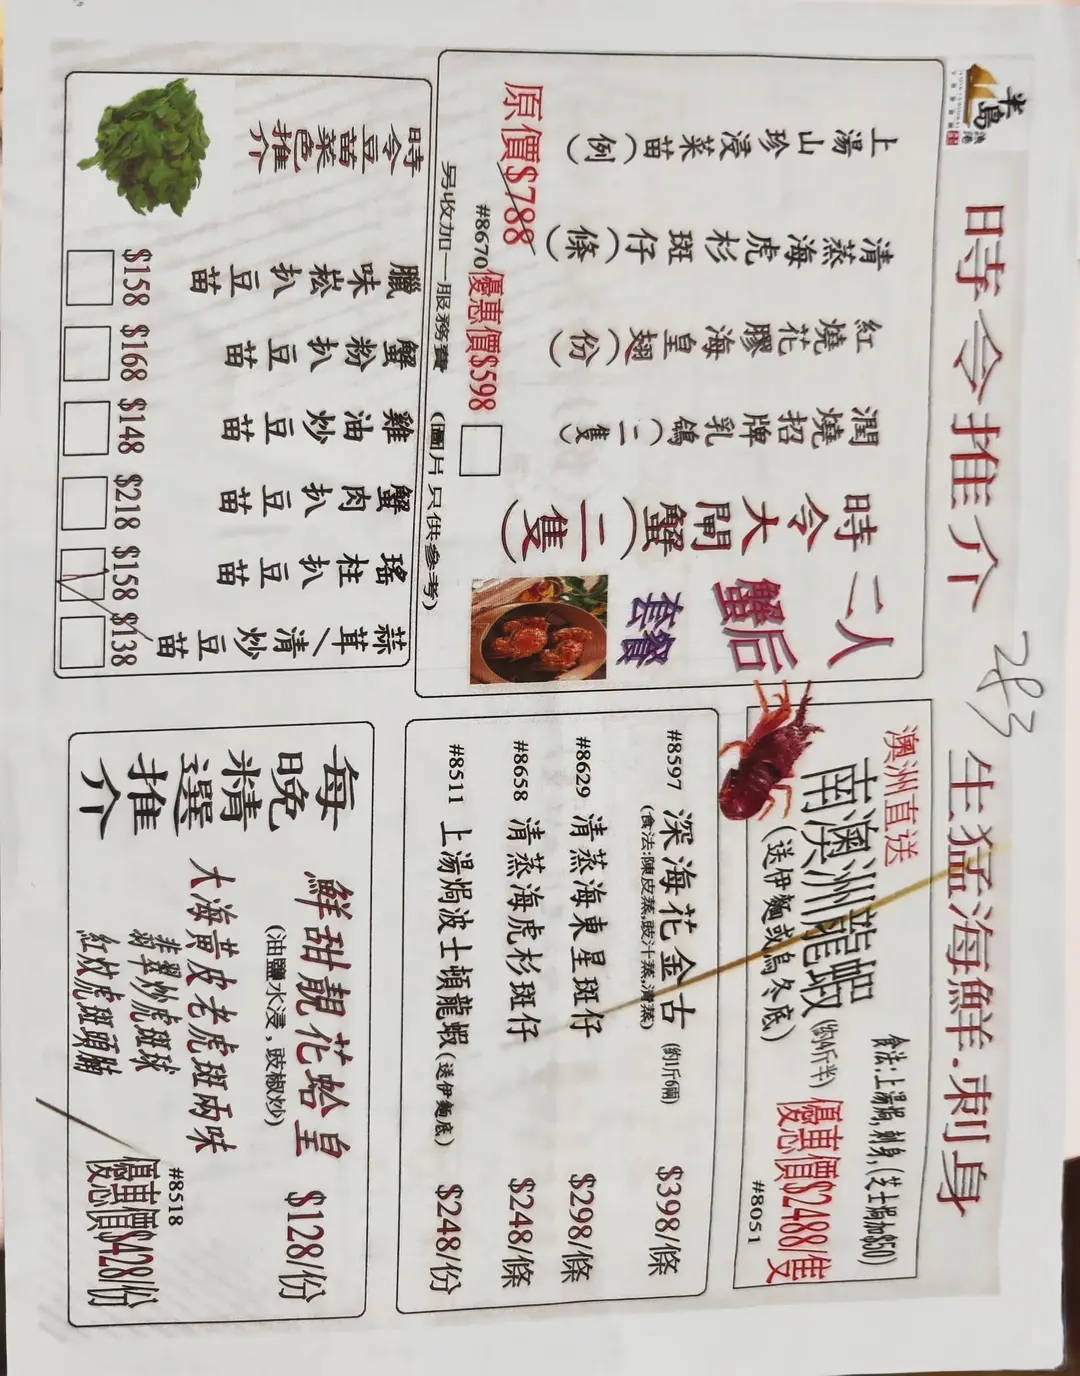 半島
漁港
時令推介
二人
蟹后
套餐
時令大閘蟹(二隻)
潤燒招牌乳鴿(二隻)
紅燒花膠海皇翅(份)
清蒸海虎杉斑仔(條)
上湯山珍浸菜苗(例)
原價$788
#8670優惠價$598
另收加一服務費 (圖片只供參考)
時令豆苗菜色推介
臘味崧扒豆苗 $158
蟹粉扒豆苗 $168
雞油炒豆苗 $148
蟹肉扒豆苗 $218
瑤柱扒豆苗 $158
蒜茸/清炒豆苗 $138
283
生猛海鮮.刺身
澳洲直送
南澳洲龍蝦(約4斤半)
(送伊麵或烏冬底)
食法:上湯焗,刺身,(芝士焗加$50)
優惠價$2488/隻
#8051
#8597 深海花金古(約1斤6兩) $398/條
(食法:陳皮蒸,豉汁蒸,清蒸)
#8629 清蒸海東星斑仔 $298/條
#8658 清蒸海虎杉斑仔 $248/條
#8511 上湯焗波士頓龍蝦(送伊麵底) $248/份
每晚精選推介
鮮甜靚花蛤皇 $128/份
(油鹽水浸,豉椒炒)
大海黃皮老虎斑兩味
翡翠炒虎斑球
紅炆虎斑頭腩
#8518
優惠價$428/份